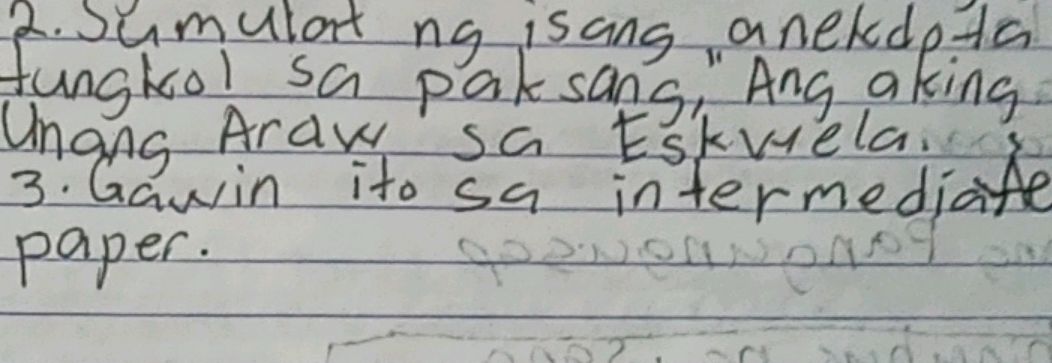 2. Sumulat ng isang anekdota
tungkol sa paksang, "Ang aking
Unang Araw sa Eskwela.
3. Gawin ito sa intermediate
paper.